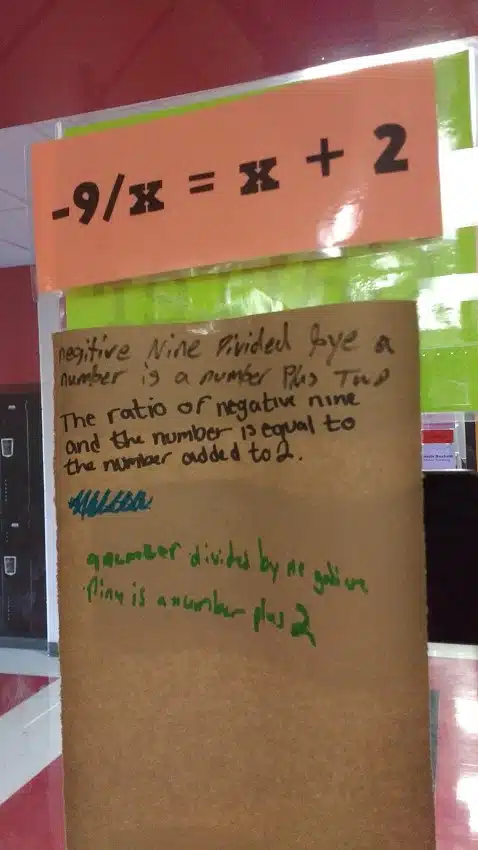 -9/x = x + 2
negitive Nine Divided bye a
number is a number Plus Two
The ratio of negative nine
and the number is equal to
the number added to 2.
a number divided by negative
Nine is a number plus 2